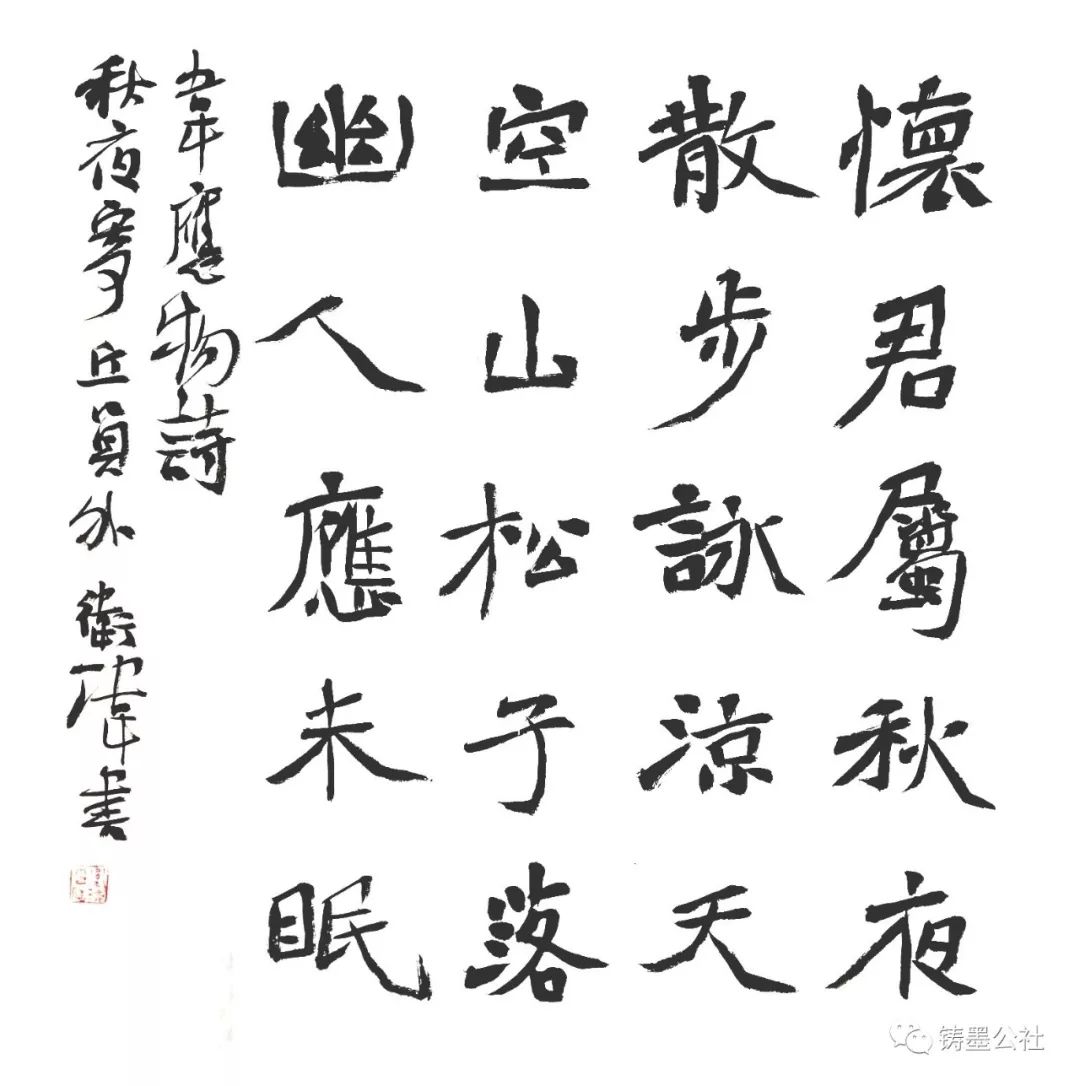 懷君屬秋夜
散步詠涼天
空山松子落
幽人應未眠
韋應物詩
秋夜寄丘員外 衛瑋書
铸墨公社